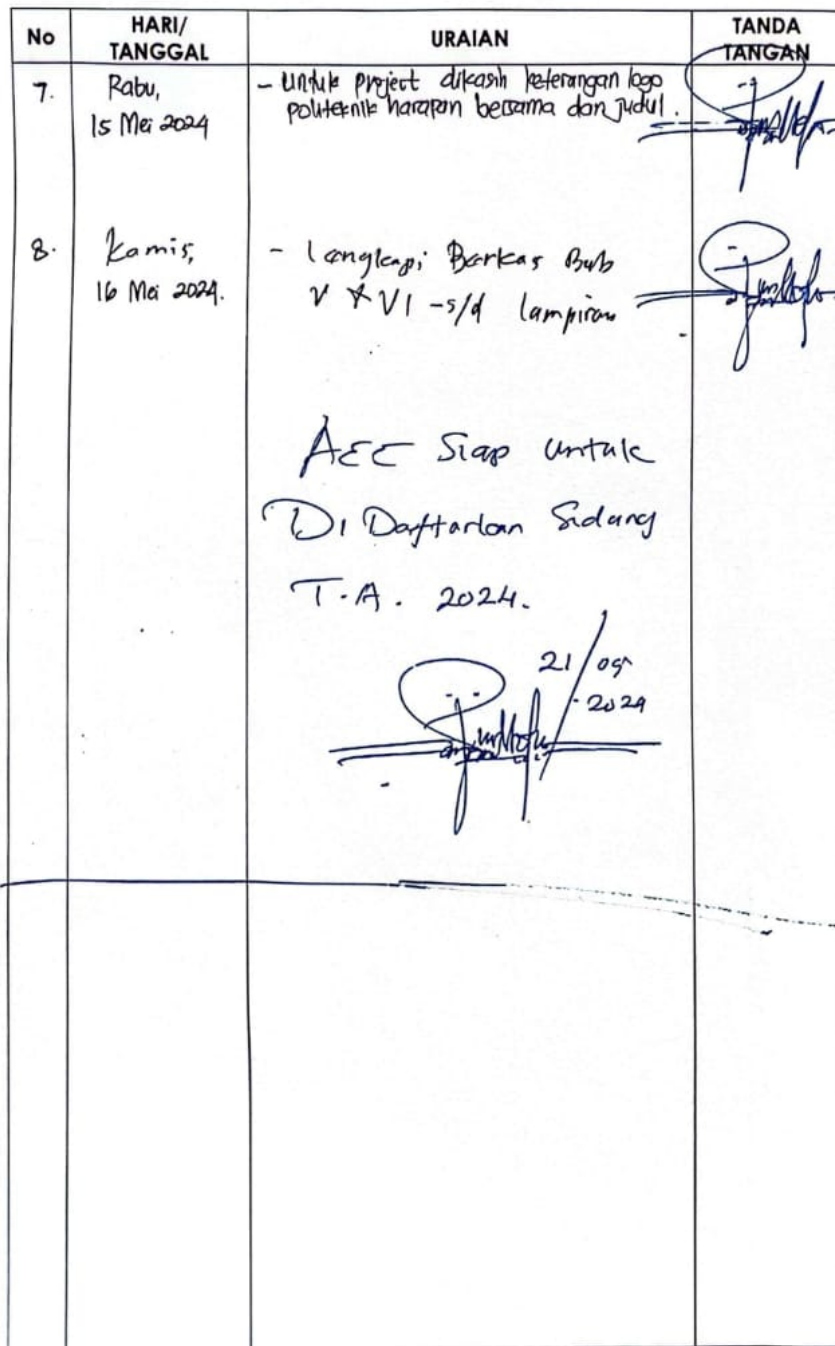 No HARI/ TANGGAL URAIAN TANDA TANGAN
7. Rabu, 15 Mei 2024
- Untuk project dikasih keterangan logo
politeknik harapan bersama dan judul.
8. Kamis, 16 Mei 2024.
- Lengkapi Berkas Bab
V & VI - s/d lampiran
ACC Siap untuk
Di Daftarkan Sidang
T.A. 2024.
21/05
-2024